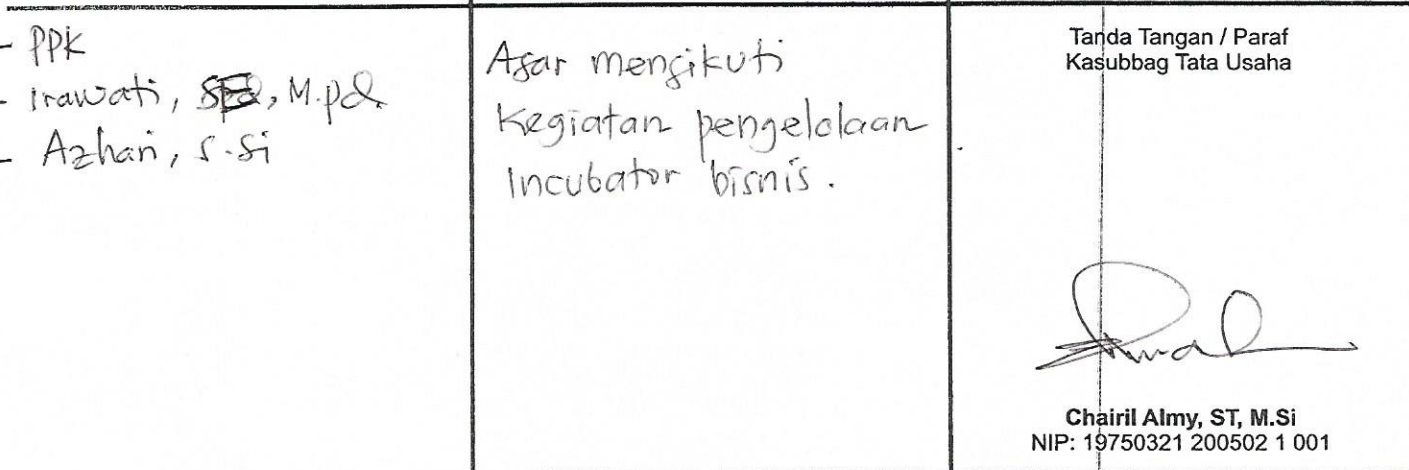 - PPK
- Irawati, SE, M.pd
- Azhari, S.Si
Agar mengikuti
Kegiatan pengelolaan
Incubator bisnis.
Tanda Tangan / Paraf
Kasubbag Tata Usaha
Chairil Almy, ST, M.Si
NIP: 19750321 200502 1 001